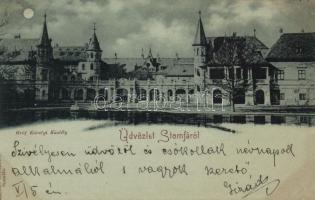 Gróf Károlyi Kastély
Üdvözlet Stomfáról
Szivélyesen üdvözöl és csókollak névnapod
alkalmából s vagyok szerető
V/5 én.